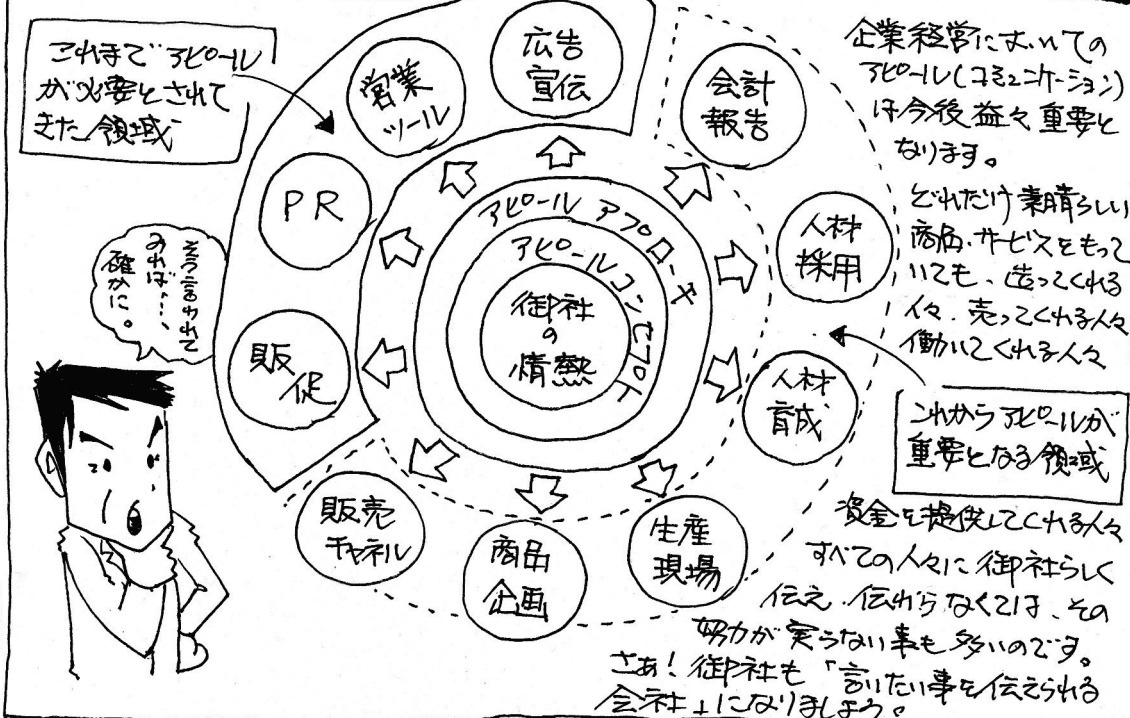 これまでアピール
が必要とされて
きた領域
営業
ツール
広告
宣伝
会計
報告
PR
人材
採用
販
促
人材
育成
販売
チャネル
商品
企画
生産
現場
アピール アプローチ
アピールコンセプト
御社
の
情熱
そう言われて
みれば…、
確かに。
企業経営においての
アピール(コミュニケーション)
は今後益々重要と
なります。
どれだけ素晴らしい
商品・サービスをもって
いても、造ってくれる
人々、売ってくれる人々
働いてくれる人々
これからアピールが
重要となる領域
資金を提供してくれる人々
すべての人々に御社らしく
伝え、伝わらなくては、その
努力が実らない事も多いのです。
さぁ!御社も「言いたい事を伝えられる
会社」になりましょう。